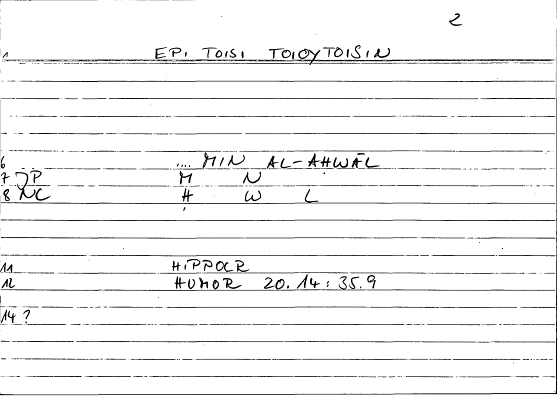 2
1 EPI TOISI TOIOYTOISIN
6 .... MIN AL-AHWĀL
7 JP M N
8 NC H W L
11 HIPPOCR
12 HUMOR 20.14:35.9
14 ?